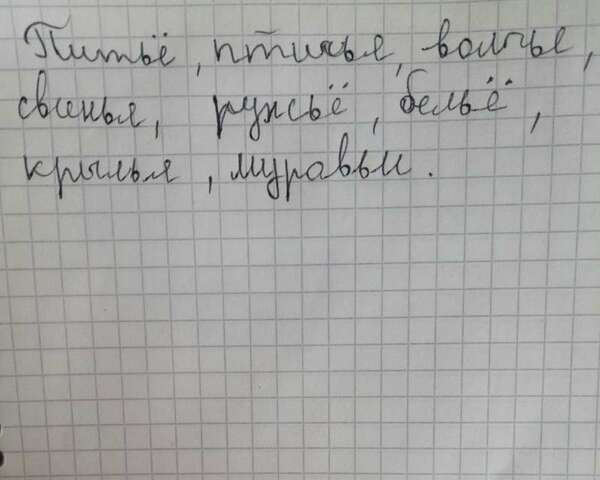 Питьё, птичье, волчье,
свинья, ружьё, бельё,
крылья, муравьи.